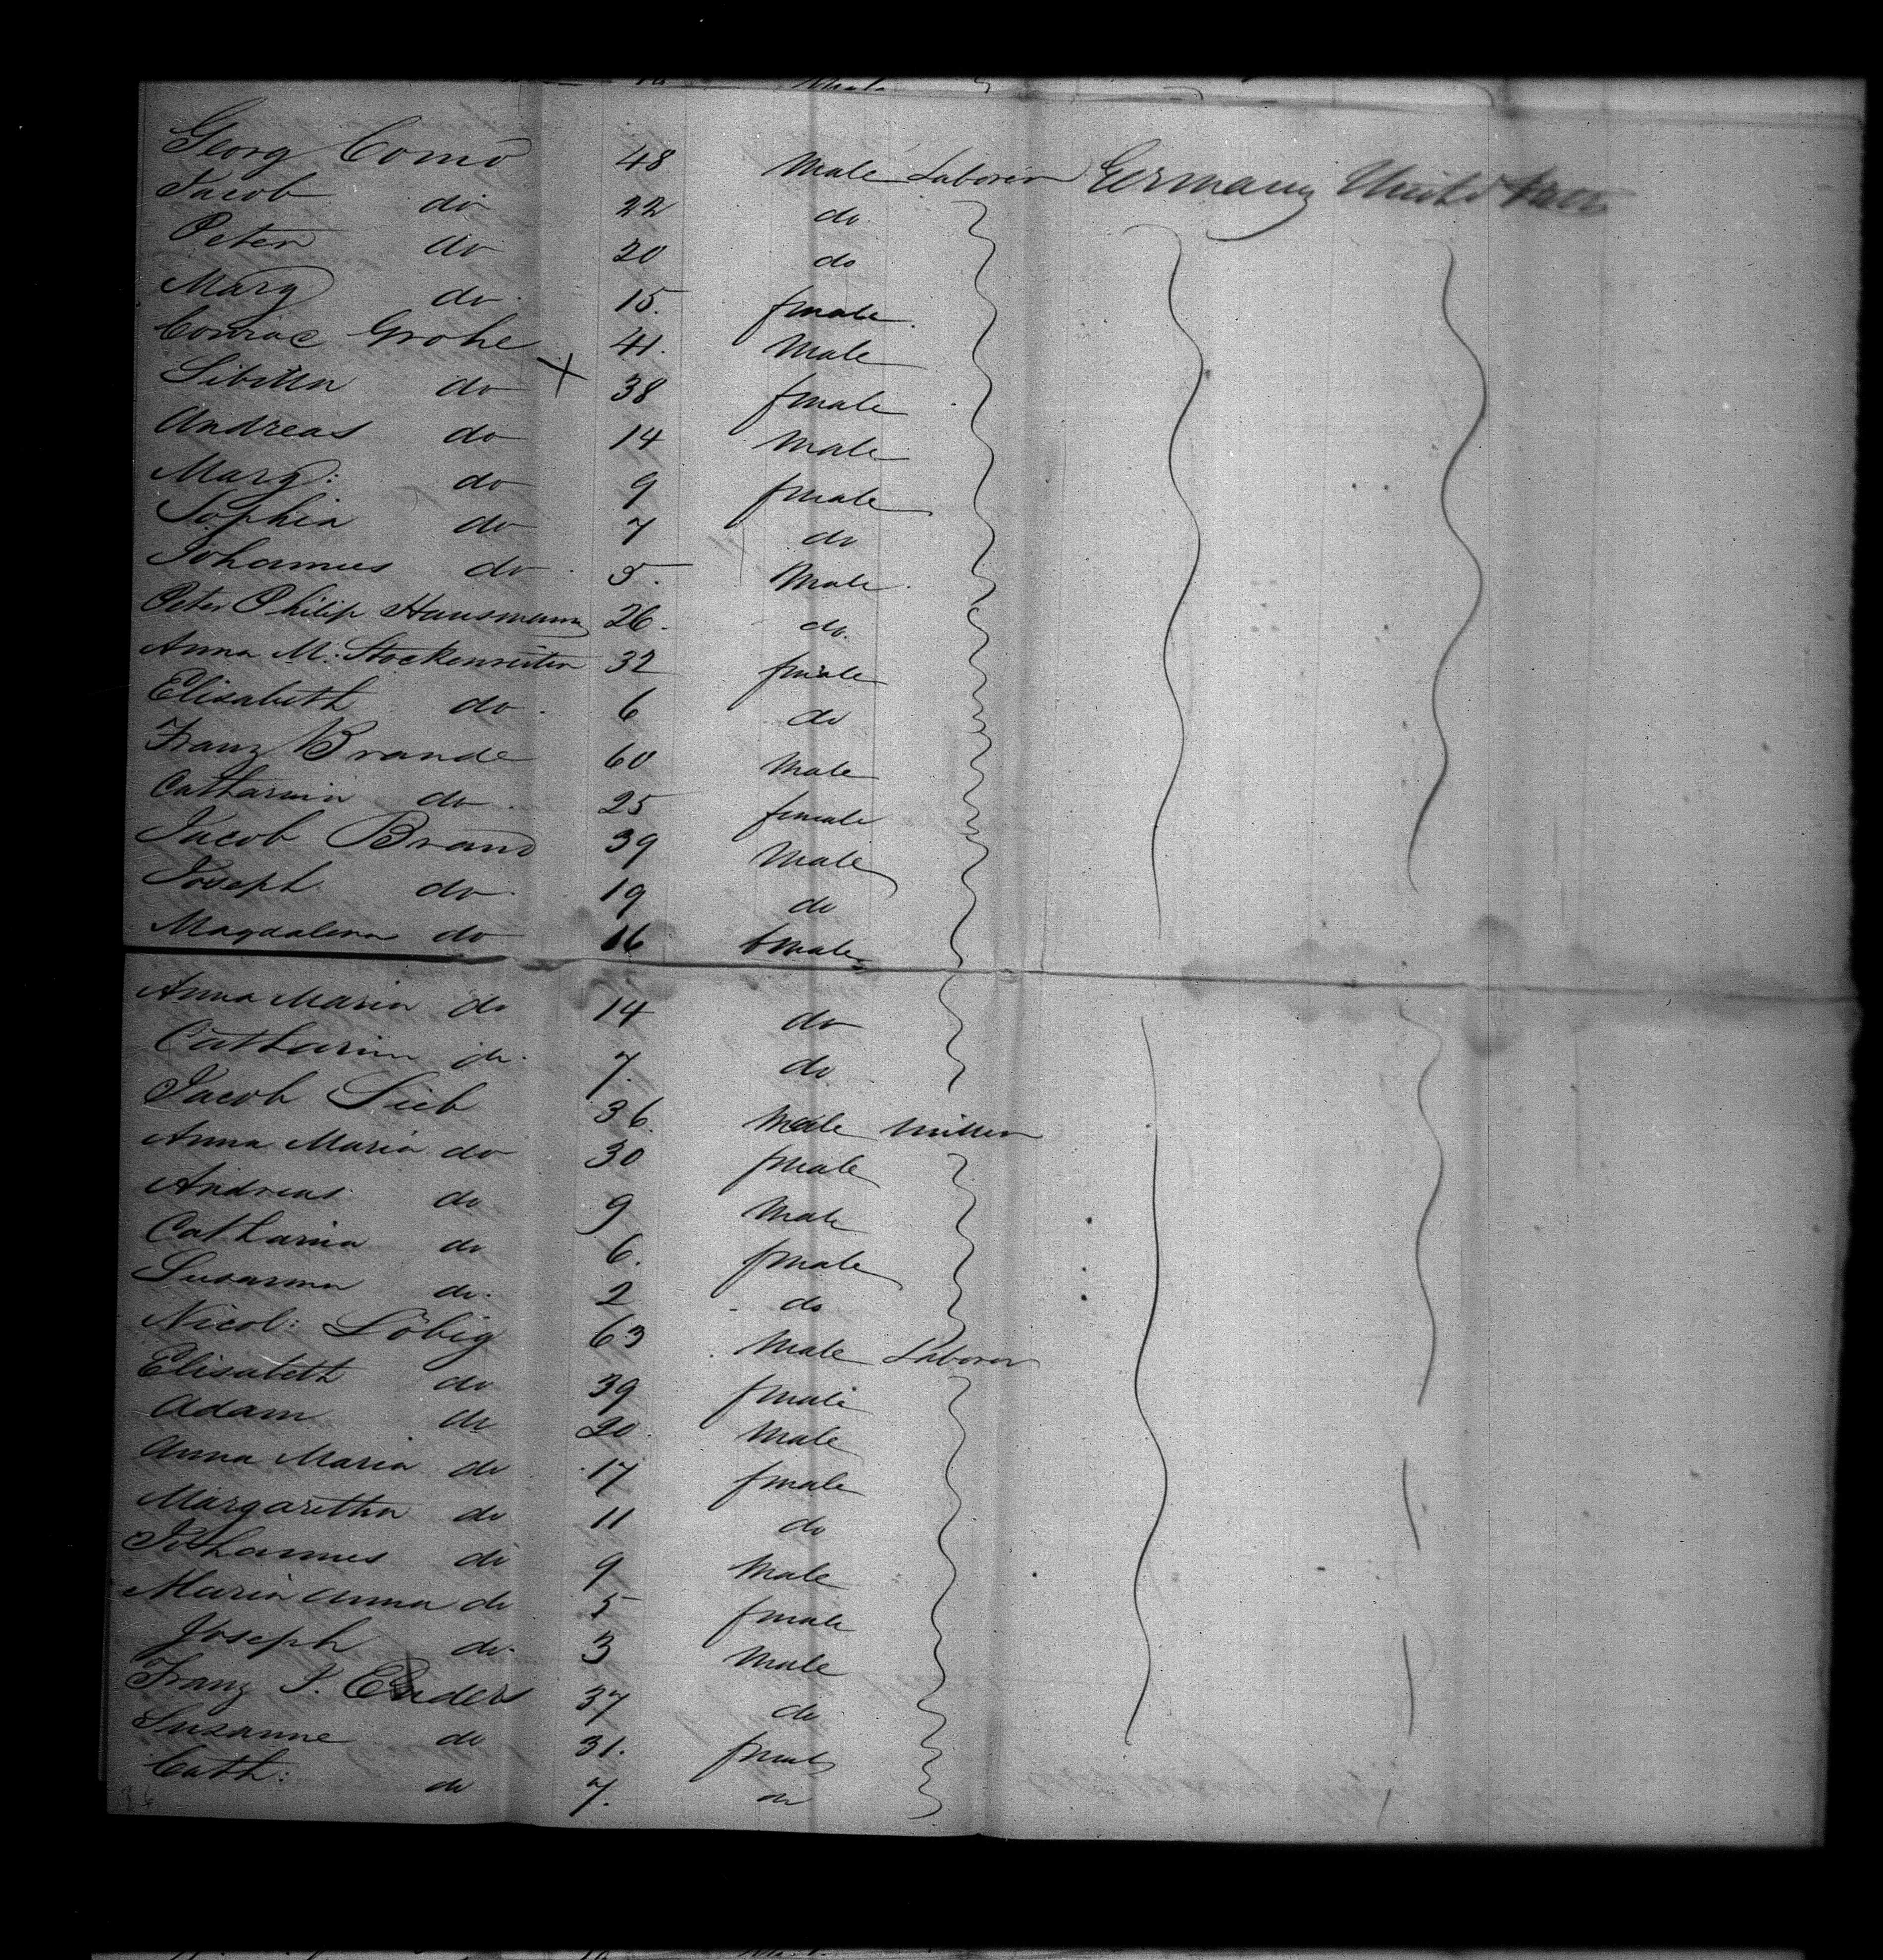 Georg Como 48 Male Laborer Germany United States
Jacob do 22 do
Peter do 20 do
Marg do 15. female
Conrad Grohe 41. Male
Sibilla do 38 female
Andreas do 14 Male
Marg: do 9 female
Sophia do 7 do
Johannes do 5. Male
Peter Philip Hausmann 26. do.
Anna M. Stockenreiter 32 female
Elisabeth do. 6 do
Franz Brande 60 Male
Catharina do 25 female
Jacob Brand 39 Male
Joseph do 19 do
Magdalena do 16 female
Anna Maria do 14 do
Catharina do. 7. do
Jacob Sieb 36. Male Miller
Anna Maria do 30 female
Andreas do 9 Male
Catharina do 6. female
Susanna do. 2 do
Nicol: Löbig 63 Male Laborer
Elisabeth do 39 female
Adam do 20 Male
Anna Maria do 17 female
Margaretha do 11 do
Johannes do 9 Male
Maria Anna do 5 female
Joseph do. 3 Male
Franz J. Enders 37 do
Susanne do 31. female
Cath: do 7. do